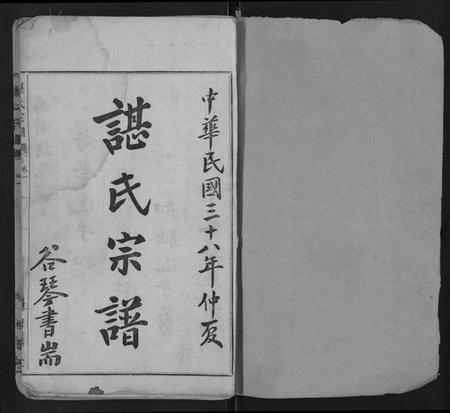 中華民國三十八年仲夏
諶氏宗譜
谷琴書耑